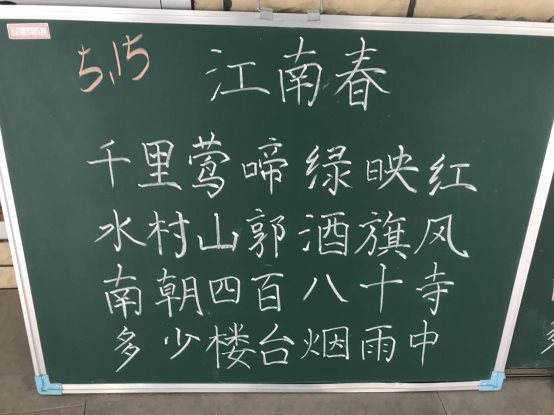 5.15
江南春
千里莺啼绿映红
水村山郭酒旗风
南朝四百八十寺
多少楼台烟雨中